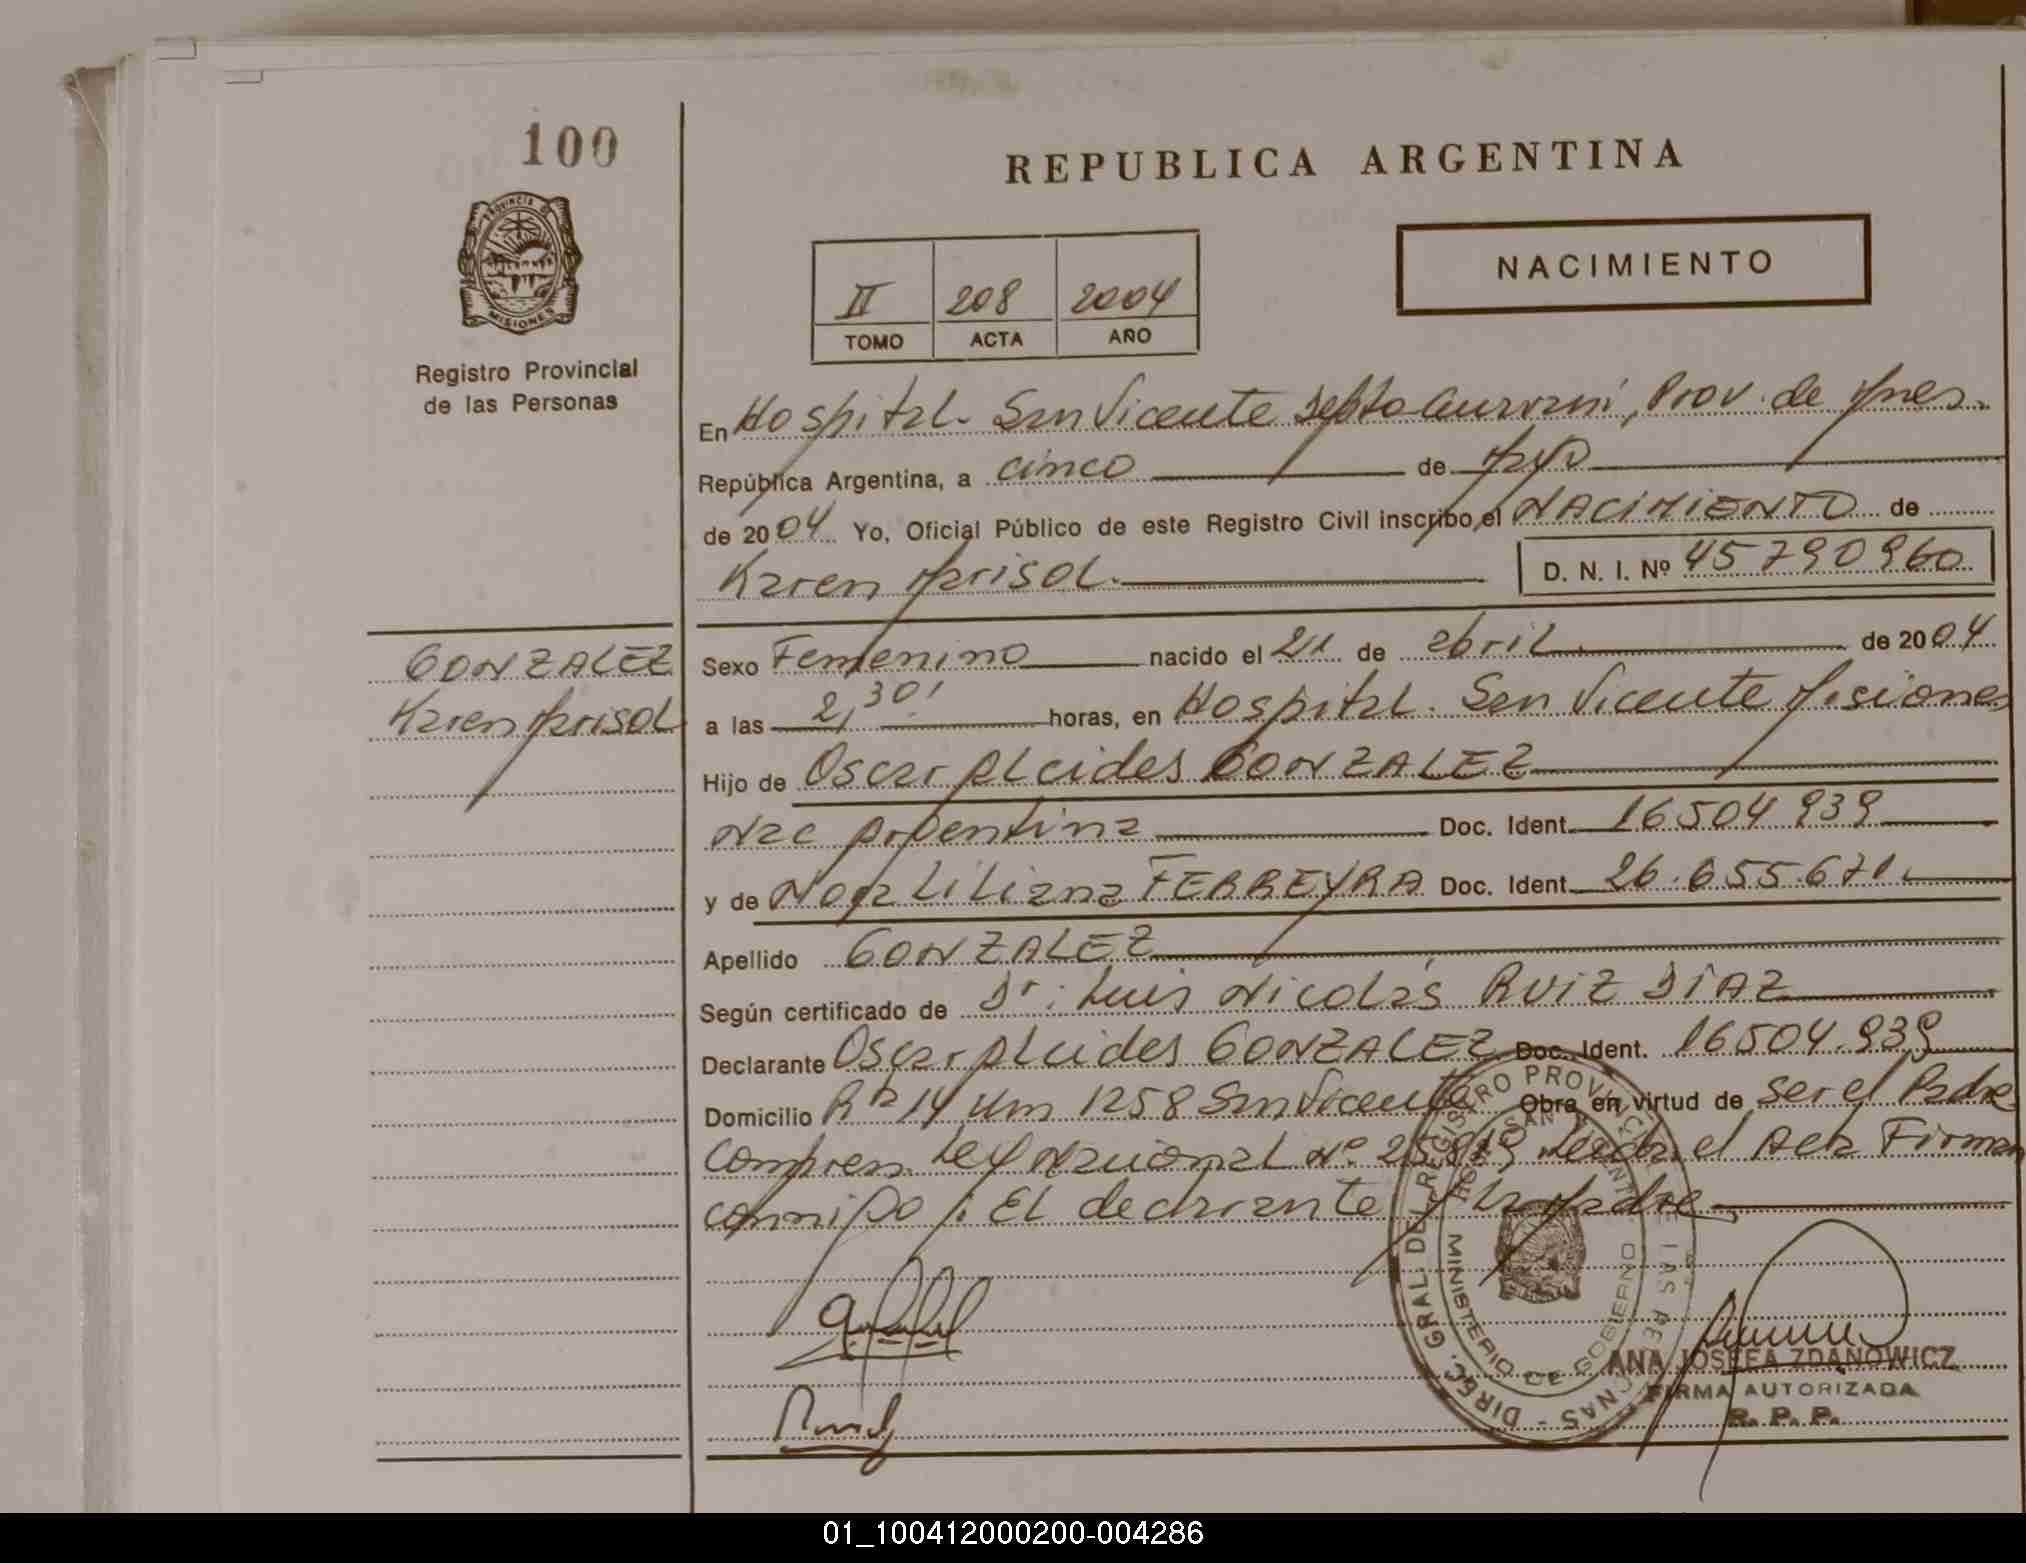 100
REPUBLICA ARGENTINA
PROVINCIA DE
MISIONES
NACIMIENTO
II 208 2004
TOMO ACTA AÑO
Registro Provincial
de las Personas
En Hospital. San Vicente Depto Guaraní, Prov. de Mnes.
República Argentina, a cinco de Mayo
de 2004 Yo, Oficial Público de este Registro Civil inscribo el NACIMIENTO de
Karen Marisol. D. N. I. Nº 45790960
GONZALEZ
Karen Marisol
Sexo Femenino nacido el 21 de abril de 2004
a las 2,30' horas, en Hospital. San Vicente Misiones
Hijo de Oscar Alcides GONZALEZ
Nac Argentina Doc. Ident. 16504939
y de Liliana FERREYRA Doc. Ident. 26.655.671.
Apellido GONZALEZ
Según certificado de Dr. Luis Nicolás RUIZ DIAZ
Declarante Oscar Alcides GONZALEZ Doc. Ident. 16504.939
Domicilio Rta 14 Km 1258 San Vicente Obra en virtud de ser el Padre
Ley Nacional Nº 25819 Leida el Acta Firman
conmigo: El declarante y la Madre
DIREC. GRAL. DEL REGISTRO PROVINCIAL DE LAS PERSONAS
MINISTERIO DE GOBIERNO
ANA JOSEFA ZDANOWICZ
FIRMA AUTORIZADA
R. P. P.
01_100412000200-004286